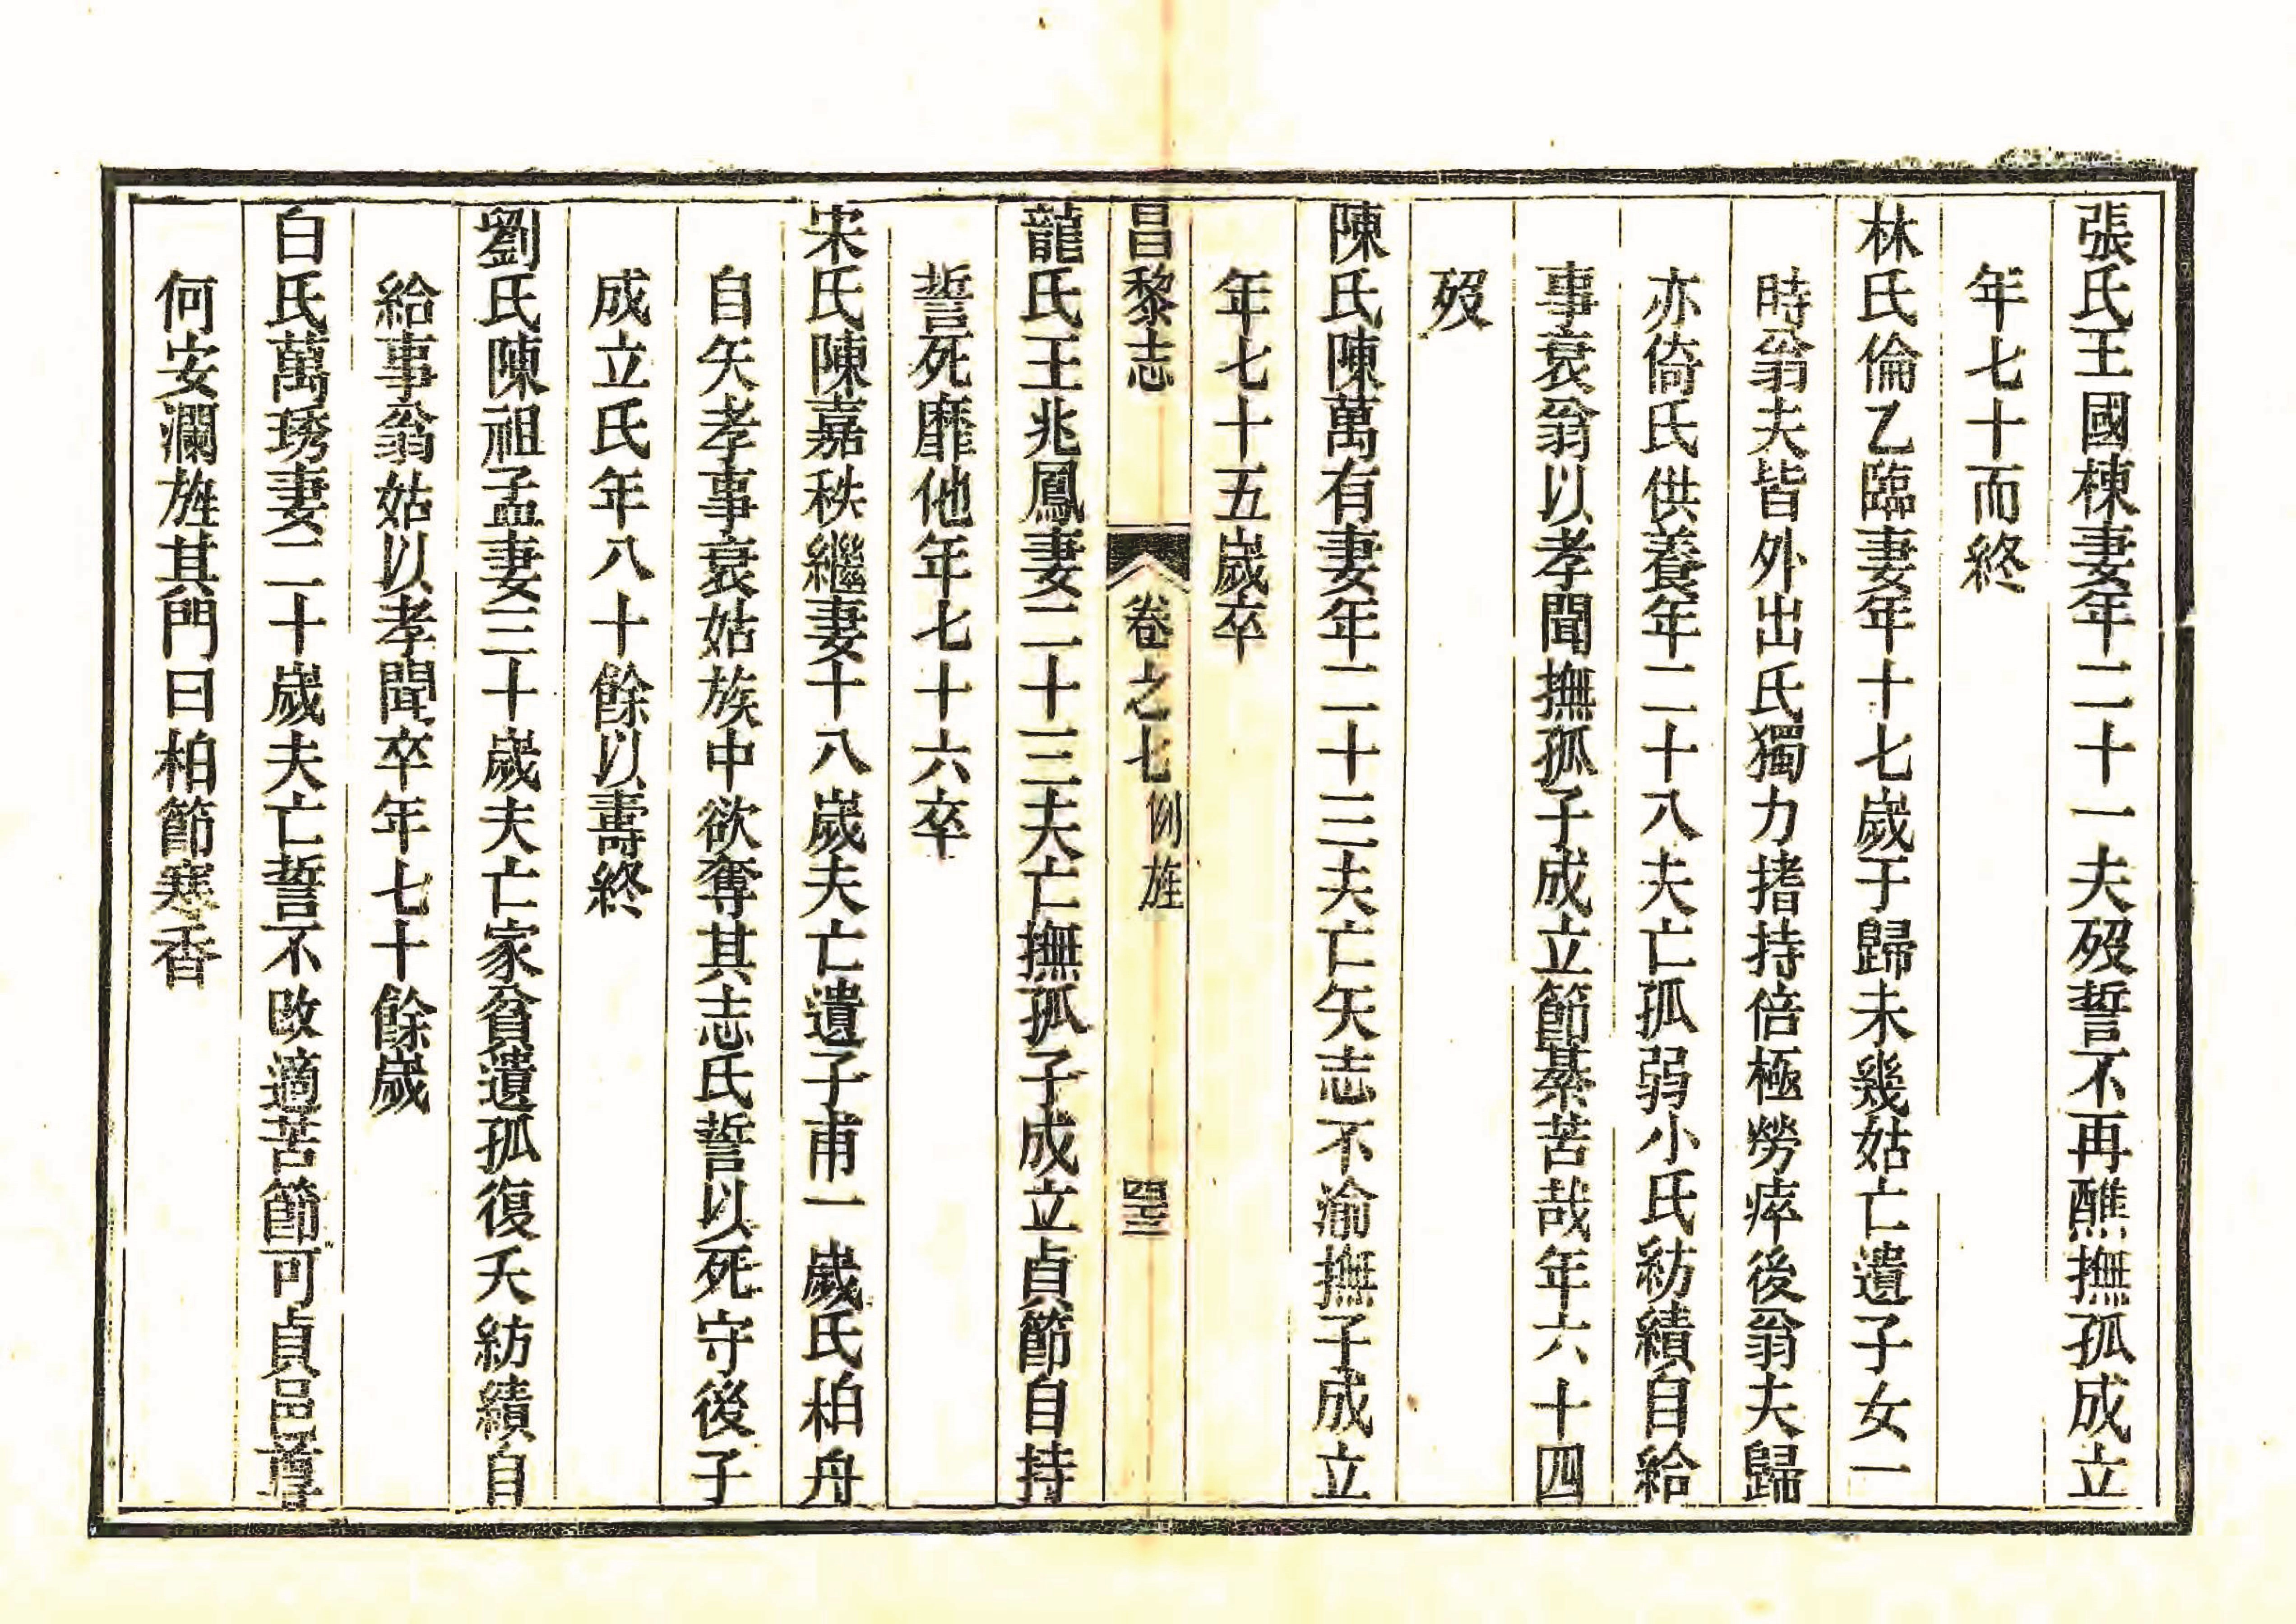 張氏王國棟妻年二十一夫歿誓不再醮撫孤成立
年七十而終
林氏倫乙臨妻年十七嵗于歸未幾姑亡遺子女一
時翁夫皆外出氏獨力揩持倍極勞瘁後翁夫歸
亦倚氏供養年二十八夫亡孤弱小氏紡績自給
事衰翁以孝聞撫孤子成立節綦苦哉年六十四
歿
陳氏陳萬有妻年二十三夫亡矢志不渝撫子成立
年七十五嵗卒
昌黎志 卷之七 例旌 四三
龍氏王兆鳳妻二十三夫亡撫孤子成立貞節自持
誓死靡他年七十六卒
宋氏陳嘉秩繼妻十八嵗夫亡遺子甫一嵗氏柏舟
自矢孝事衰姑族中欲奪其志氏誓以死守後子
成立氏年八十餘以壽終
劉氏陳祖孟妻三十嵗夫亡家貧遺孤復夭紡績自
給事翁姑以孝聞卒年七十餘嵗
白氏萬琇妻二十嵗夫亡誓不改適苦節可貞邑尊
何安瀾旌其門曰柏節寒香